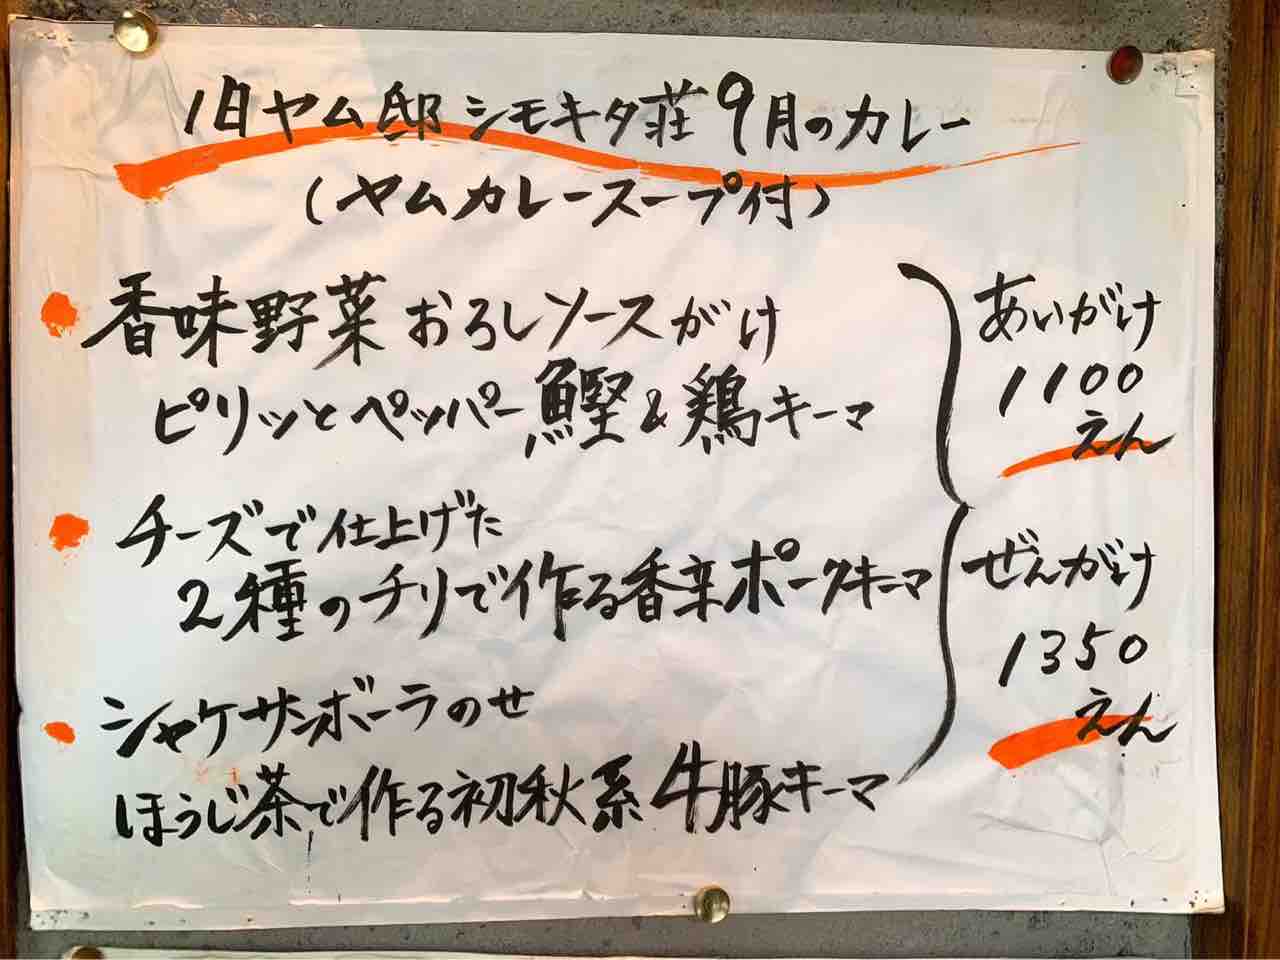 旧ヤム邸 シモキタ荘 9月のカレー
(ヤムカレースープ付)
香味野菜おろしソースがけ
ピリッとペッパー鰹&鶏キーマ
チーズで仕上げた
2種のチリで作る香辛ポークキーマ
シャケサンボーラのせ
ほうじ茶で作る初秋系 牛豚キーマ
あいがけ
1100
えん
ぜんがけ
1350
えん